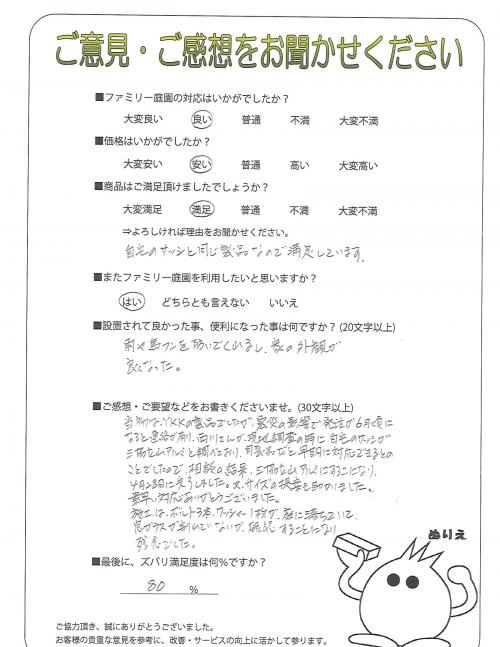 ご意見・ご感想をお聞かせください
■ファミリー庭園の対応はいかがでしたか？
大変良い 良い 普通 不満 大変不満
■価格はいかがでしたか？
大変安い 安い 普通 高い 大変高い
■商品はご満足頂けましたでしょうか？
大変満足 満足 普通 不満 大変不満
⇒よろしければ理由をお聞かせください。
自宅のサッシと同じ製品なので満足しています。
■またファミリー庭園を利用したいと思いますか？
はい どちらとも言えない いいえ
■設置されて良かった事、便利になった事は何ですか？(20文字以上)
雨や鳥フンを防いでくれるし、家の外観が
良くなった。
■ご感想・ご要望などをお書きくださいませ。(30文字以上)
当初は、YKKの製品でしたが、震災の影響で発注が6月頃に
なると連絡が有り、西川さんが、現地調査の時に自宅のサッシが
三協立山アルミと調べており、同製品だと早期に対応できるとの
ことでしたので、相談の結果、三協立山アルミにすることになり、
4月28日に完了しました。又、サイズの提案も助かりました。
素早い対応ありがとうございました。
施工は、ボルト3本、ワッシャー1枚が、庭に落ちていて、
窓ガラスが割れていないか、確認することになり
残念でした。
■最後に、ズバリ満足度は何％ですか？
80 %
ぬりえ
ご協力頂き、誠にありがとうございました。
お客様の貴重な意見を参考に、改善・サービスの向上に活かして参ります。